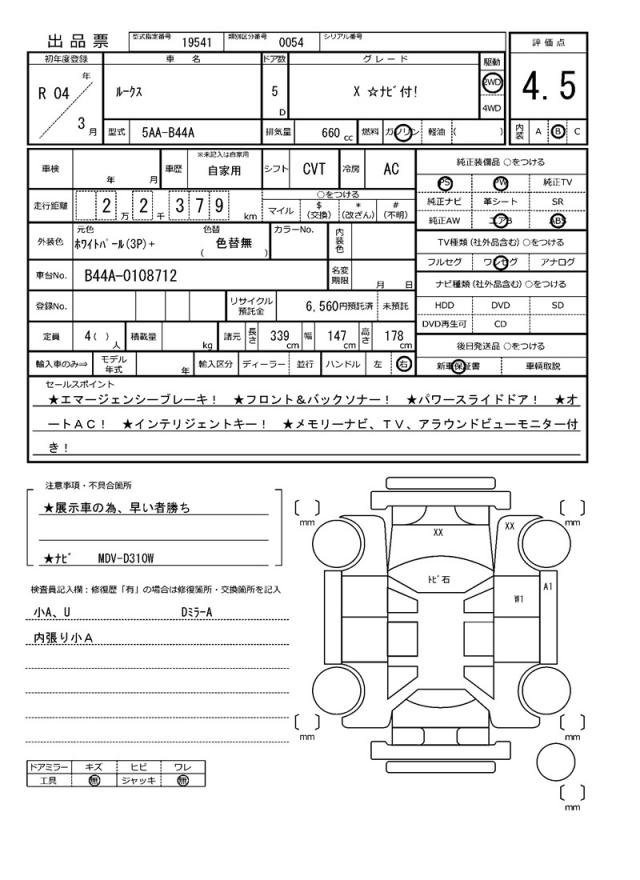 出品票 型式指定番号 19541 類別区分番号 0054 シリアル番号
評価点
4.5
内装 A B C
初年度登録 車名 ドア数 グレード 駆動
R 04 年 3 月 ルークス 5 D X ☆ナビ付! 2WD 4WD
型式 5AA-B44A 排気量 660 cc 燃料 ガソリン 軽油 ( )
車検 年 月 車歴 ※未記入は自家用 自家用 シフト CVT 冷房 AC
走行距離 2 万 2 千 3 7 9 km ○をつける
マイル $(交換) *(改ざん) #(不明)
外装色 元色 ホワイトパール(3P)+ 色替 ( 色替無 ) カラーNo. 内装色
車台No. B44A-0108712 名変期限 月 日
登録No. リサイクル預託金 6,560円預託済 未預託
定員 4( ) 人 積載量 kg 諸元 長さ 339 cm 幅 147 cm 高さ 178 cm
輸入車のみ⇒ モデル年式 年 輸入区分 ディーラー 並行 ハンドル 左 右
純正装備品 ○をつける
PS PW 純正TV
純正ナビ 革シート SR
純正AW エアB ABS
TV種類(社外品含む)○をつける
フルセグ ワンセグ アナログ
ナビ種類(社外品含む)○をつける
HDD DVD SD
DVD再生可 CD
後日発送品 ○をつける
新車保証書 車輌取説
セールスポイント
★エマージェンシーブレーキ! ★フロント&バックソナー! ★パワースライドドア! ★オ
ートAC! ★インテリジェントキー! ★メモリーナビ、TV、アラウンドビューモニター付
き!
注意事項・不具合箇所
★展示車の為、早い者勝ち
★ナビ MDV-D310W
検査員記入欄:修復歴「有」の場合は修復箇所・交換箇所を記入
小A、U Dミラー A
内張り小A
ドアミラー キズ ヒビ ワレ
工具 無 ジャッキ 無
mm mm
XX XX
トビ石
W1 A1
mm mm
mm